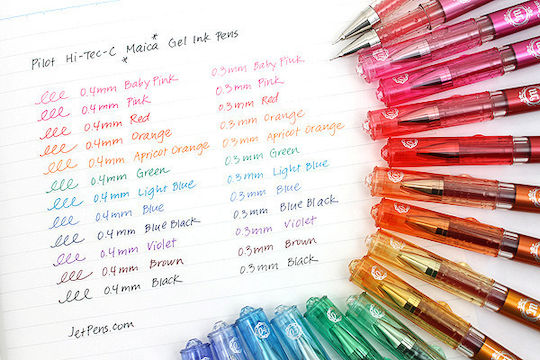 Pilot Hi-Tec-C *Maica* Gel Ink Pens
0.4mm Baby Pink 0.3mm Baby Pink
0.4mm Pink 0.3mm Pink
0.4mm Red 0.3mm Red
0.4mm Orange 0.3mm Orange
0.4mm Apricot Orange 0.3mm Apricot Orange
0.4mm Green 0.3mm Green
0.4mm Light Blue 0.3mm Light Blue
0.4mm Blue 0.3mm Blue
0.4mm Blue Black 0.3mm Blue Black
0.4mm Violet 0.3mm Violet
0.4mm Brown 0.3mm Brown
0.4mm Black 0.3mm Black
JetPens.com